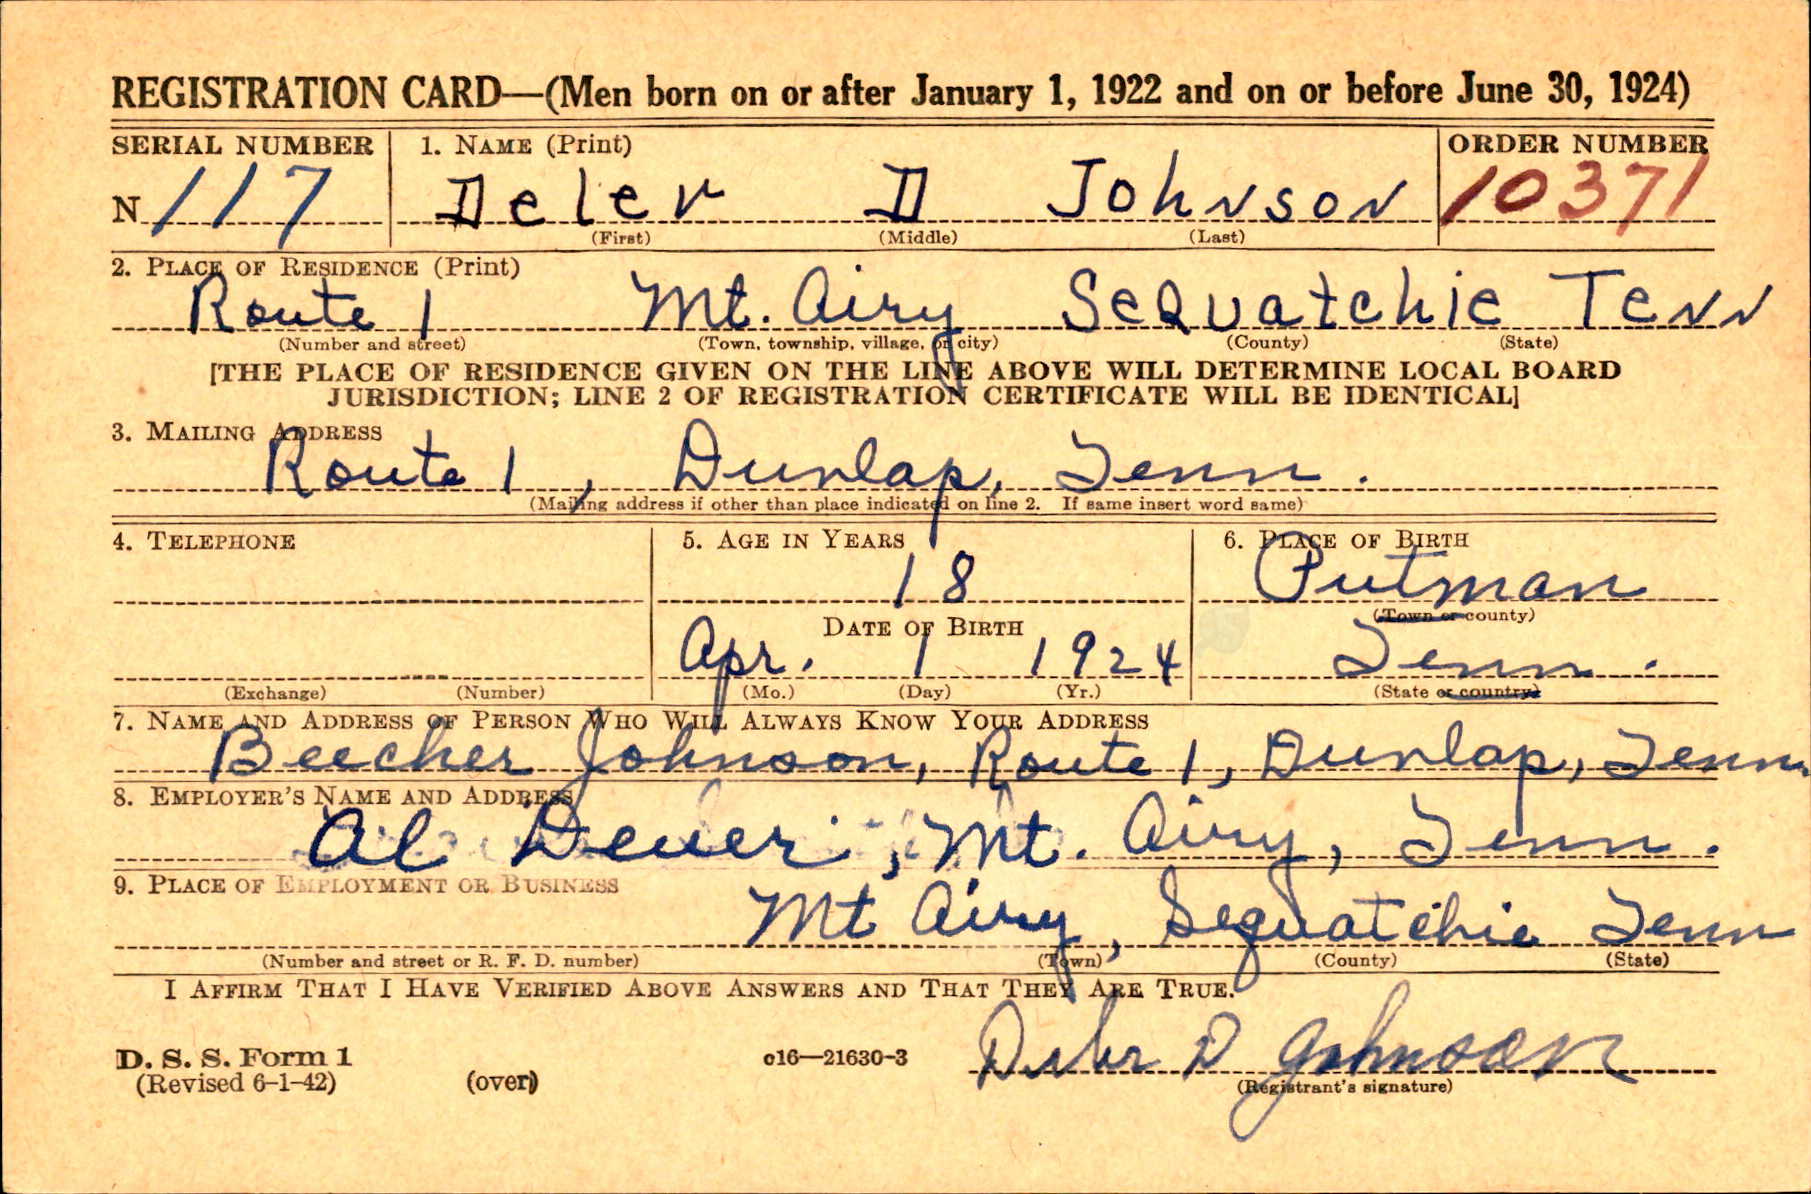 REGISTRATION CARD—(Men born on or after January 1, 1922 and on or before June 30, 1924)
SERIAL NUMBER 1. NAME (Print) ORDER NUMBER
N 117 Deler D Johnson 10371
(First) (Middle) (Last)
2. PLACE OF RESIDENCE (Print)
Route 1 Mt. Airy Sequatchie Tenn
(Number and street) (Town, township, village, or city) (County) (State)
[THE PLACE OF RESIDENCE GIVEN ON THE LINE ABOVE WILL DETERMINE LOCAL BOARD
JURISDICTION; LINE 2 OF REGISTRATION CERTIFICATE WILL BE IDENTICAL]
3. MAILING ADDRESS
Route 1, Dunlap, Tenn.
(Mailing address if other than place indicated on line 2. If same insert word same)
4. TELEPHONE 5. AGE IN YEARS 6. PLACE OF BIRTH
18 Putman
(Town or county)
DATE OF BIRTH
Apr. 1 1924 Tenn.
(Exchange) (Number) (Mo.) (Day) (Yr.) (State or country)
7. NAME AND ADDRESS OF PERSON WHO WILL ALWAYS KNOW YOUR ADDRESS
Beecher Johnson, Route 1, Dunlap, Tenn.
8. EMPLOYER'S NAME AND ADDRESS
Al Dever, Mt. Airy, Tenn.
9. PLACE OF EMPLOYMENT OR BUSINESS
Mt Airy, Sequatchie Tenn
(Number and street or R. F. D. number) (Town) (County) (State)
I AFFIRM THAT I HAVE VERIFIED ABOVE ANSWERS AND THAT THEY ARE TRUE.
D. S. S. Form 1
(Revised 6-1-42) (over) c16—21630-3 Deler D Johnson
(Registrant's signature)